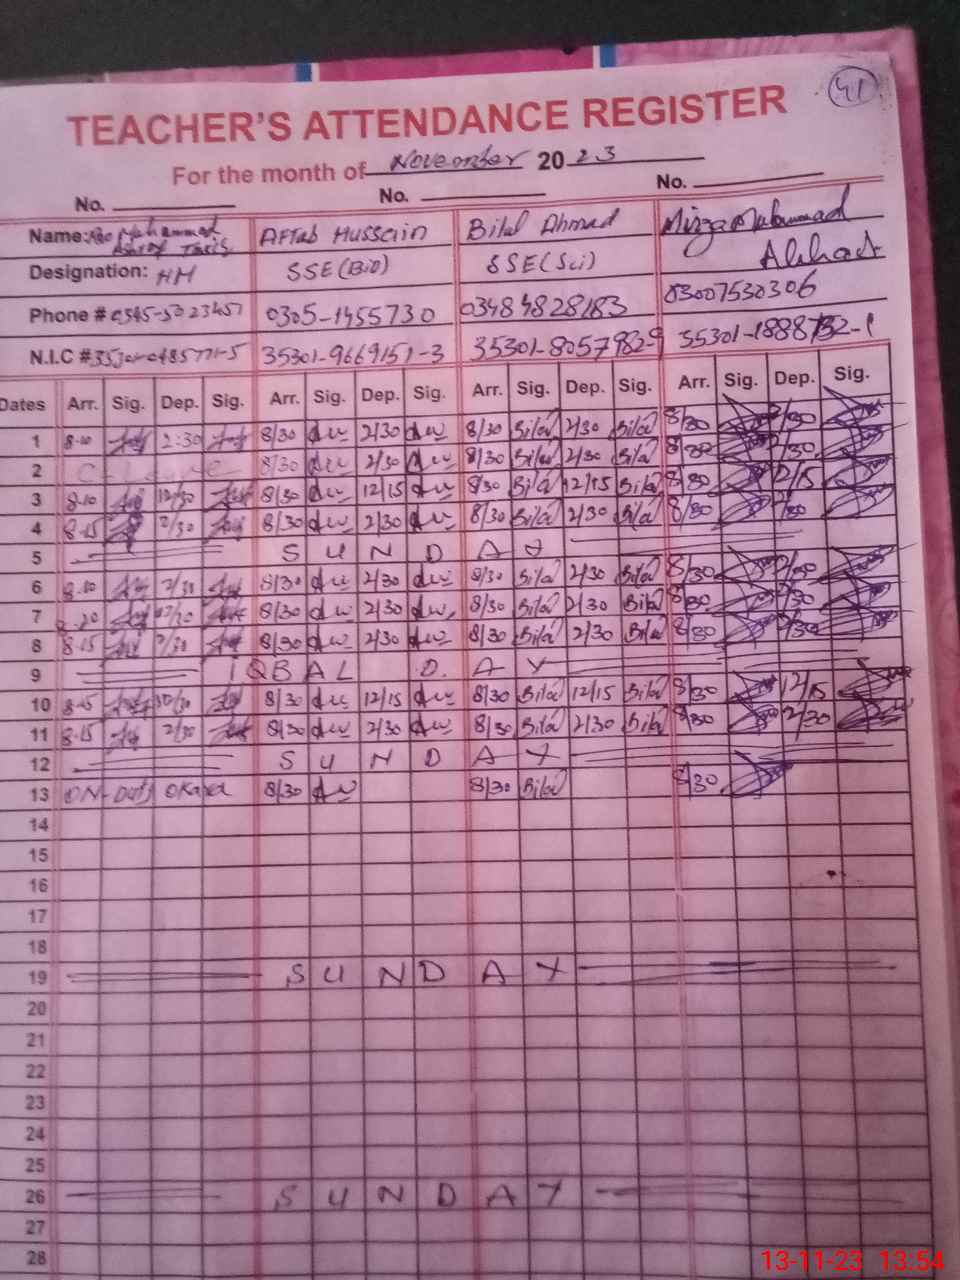 41
TEACHER'S ATTENDANCE REGISTER
For the month of November 2023
No. No. No.
Name: Muhammad Ashraf Aftab Hussain Bilal Ahmad Mirza Muhammad
Designation: HM SSE (Bio) SSE (Sci)
Phone # 0345-5023457 0305-1455730 03484828183 03007530306
N.I.C # 35301-9669151-3 35301-8057982-9
Dates Arr. Sig. Dep. Sig. Arr. Sig. Dep. Sig. Arr. Sig. Dep. Sig. Arr. Sig. Dep. Sig.
1 8-10 2:30 8/30 2/30 8/30 Bilal 2/30 Bilal 8/30 2/30
2 C-Leave 8/30 2/30 8/30 Bilal 2/30 Bilal 8/30 2/30
3 8-10 12/30 8/30 12/15 8/30 Bilal 12/15 Bilal 8/30 12/15
4 8-15 2/30 8/30 2/30 8/30 Bilal 2/30 Bilal 8/30 2/30
5 SUNDAY
6 8-10 2/30 8/30 2/30 8/30 Bilal 2/30 Bilal 8/30 2/30
7 8/30 2/30 8/30 Bilal 2/30 Bilal 8/30 2/30
8 8-15 2/30 8/30 2/30 8/30 Bilal 2/30 Bilal 8/30 2/30
9 IQBAL DAY
10 8-15 8/30 12/15 8/30 Bilal 12/15 Bilal 8/30 12/15
11 8-15 2/30 8/30 2/30 8/30 Bilal 2/30 Bilal 8/30 2/30
12 SUNDAY
13 ON Duty Okara 8/30 8/30 Bilal 8/30
14
15
16
17
18
19 SUNDAY
20
21
22
23
24
25
26 SUNDAY
27
28
13-11-23 13:54